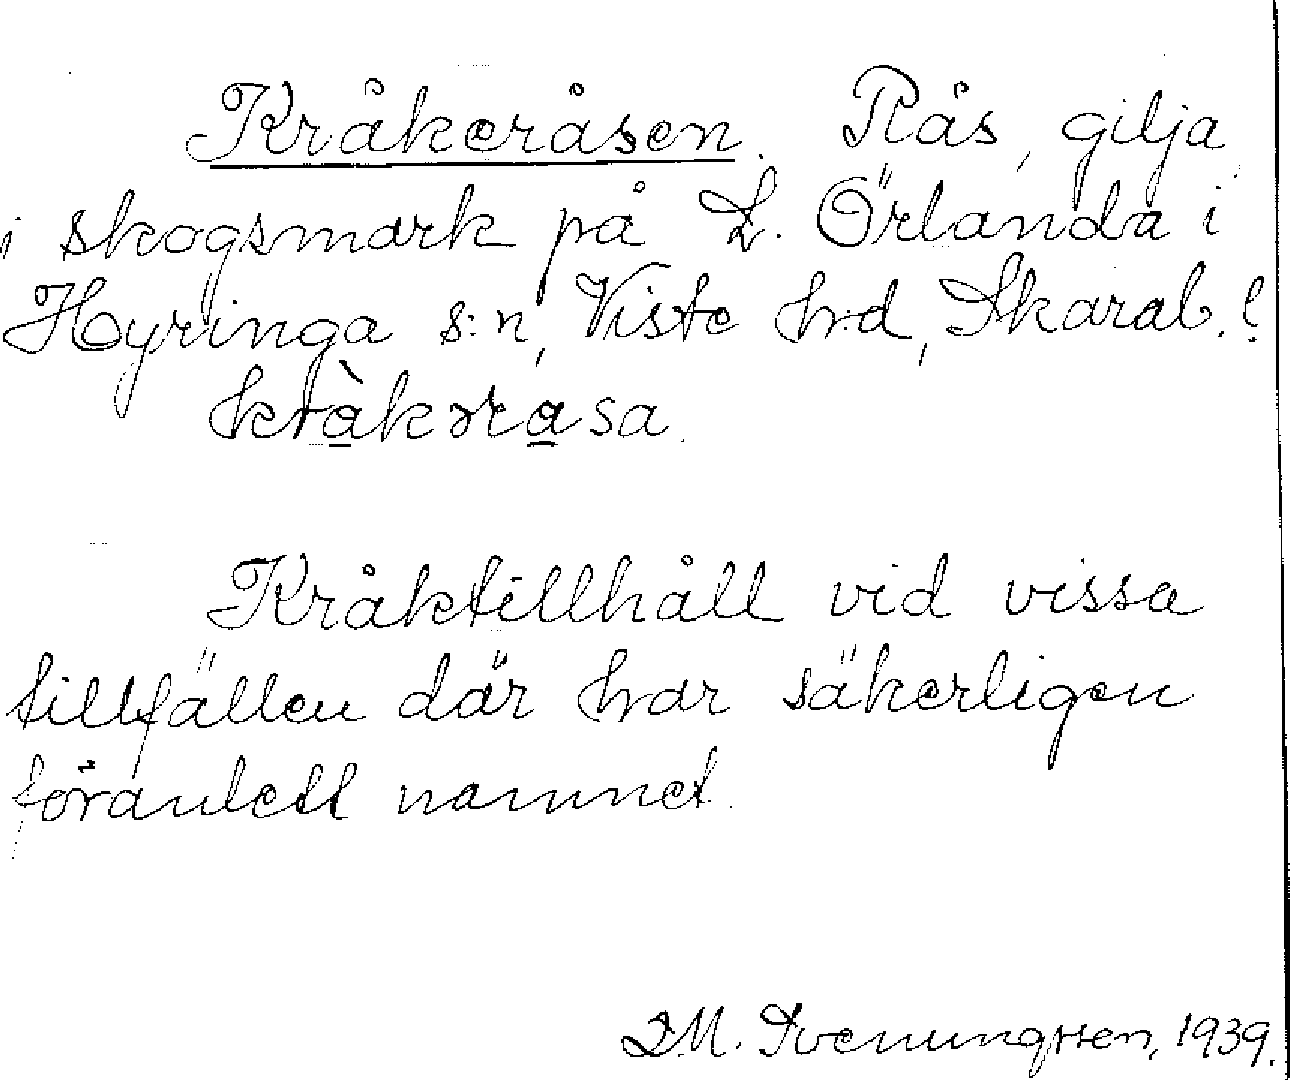 Kråkeråsen. Rås, gilja
i skogsmark på L. Örlanda i
Hyringa s:n, Viste hrd, Skarab. l.
kràkrrasa.
Kråktillhåll vid vissa
tillfällen där har säkerligen
föranlett namnet.
M. Svenungsson, 1939.